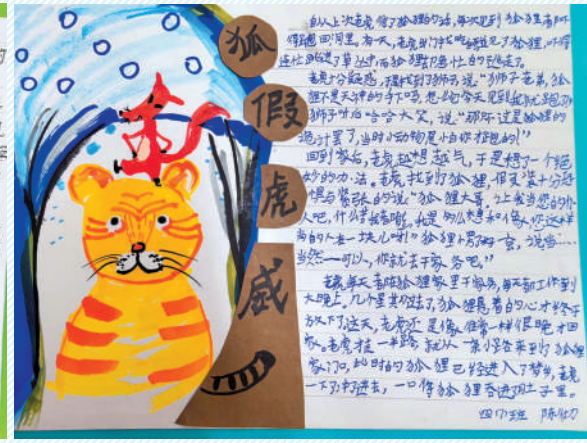 狐
假
虎
威
自从上次老虎信了狐狸的话，每次见到狐狸都吓
得跑回洞里。有一天，老虎出门找吃的碰见了狐狸，吓得
连忙躲进了草丛中，而狐狸却急忙的跑走了。
老虎十分疑惑，于是找到了狮子，说“狮子老弟，狐
狸不是天神的手下吗，怎么它今天见到我就跑
狮子听后哈哈大笑，说“那不过是狐狸的
诡计罢了，当时小动物是怕你才跑的！”
回到家后，老虎越想越气，于是想了一个绝
妙的办法。老虎找到了狐狸，假装十分
惧与紧张的说“狐狸大哥，让我当您的
人吧，什么事我都
当的人在一块儿呀”狐狸
当然一可以，你就去干家务吧。”
老虎每天都在狐狸家里干家务，每天都工作到
大晚上，几个星期过去了，狐狸悬着的心才终于
放下了。这天，老虎还是像往常一样很晚才回
家，老虎走一半路，就从一条小路来到了狐狸
家门口，此时的狐狸已经进入了梦乡，老虎
一下子冲进去，一口将狐狸吞进肚子里。
四 班 陈